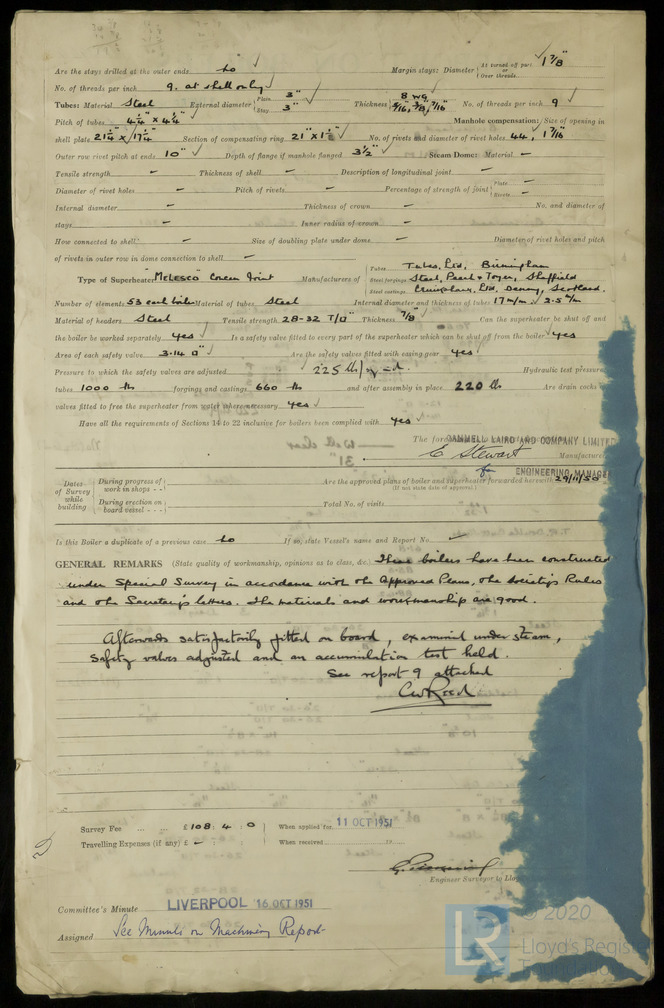 Are the stays drilled at the outer ends no Margin stays: Diameter At turned off part or Over threads 1 7/8"
No. of threads per inch 9. at shell only
Tubes: Material Steel External diameter Plain 3" Stay 3" Thickness 8 WG 5/16, 3/8, 7/16" No. of threads per inch 9
Pitch of tubes 4 1/4" x 4 1/4" Manhole compensation: Size of opening in
shell plate 21 1/4 x 17 1/4" Section of compensating ring No. of rivets and diameter of rivet holes 44, 1 7/16"
Outer row rivet pitch at ends 10" Depth of flange if manhole flanged 3 1/2" Steam Dome: Material -
Tensile strength - Thickness of shell - Description of longitudinal joint -
Diameter of rivet holes - Pitch of rivets - Percentage of strength of joint Plate - Rivets -
Internal diameter - Thickness of crown - No. and diameter of
stays - Inner radius of crown -
How connected to shell - Size of doubling plate under dome - Diameter of rivet holes and pitch
of rivets in outer row in dome connection to shell -
Type of Superheater "MELESCO" Manufacturers of Tubes Tubes, Ltd, Birmingham
Steel forgings Steel, Peech & Tozer, Sheffield
Steel castings Cruikshank, Ltd, Denny, Scotland.
Number of elements 53 each boiler Material of tubes Steel Internal diameter and thickness of tubes 17 m/m 3.5 m/m
Material of headers Steel Tensile strength 28-32 T/□" Thickness 7/8" Can the superheater be shut off and
the boiler be worked separately yes Is a safety valve fitted to every part of the superheater which can be shut off from the boiler yes
Area of each safety valve 3.14 □" Are the safety valves fitted with easing gear yes
Pressure to which the safety valves are adjusted 225 lb/ Hydraulic test pressure
tubes 1000 lbs forgings and castings 660 lbs and after assembly in place 220 lbs Are drain cocks or
valves fitted to free the superheater from water where necessary yes
Have all the requirements of Sections 14 to 22 inclusive for boilers been complied with yes
The CAMMELL LAIRD AND COMPANY LIMITED
E Stewart Manufacturer
for ENGINEERING MANAGER
Dates of Survey while building During progress of work in shops - - Are the approved plans of boiler and superheater forwarded herewith 29/11/50
(If not state date of approval.)
During erection on board vessel - - - Total No. of visits
Is this Boiler a duplicate of a previous case no If so, state Vessel's name and Report No. -
GENERAL REMARKS (State quality of workmanship, opinions as to class, &c.) These boilers have been constructed
under Special Survey in accordance with the Approved Plans, the Society's Rules
and the Secretary's letters. The materials and workmanship are good.
Afterwards satisfactorily fitted on board, examined under steam,
safety valves adjusted and an accumulation test held.
See report 9 attached
Survey Fee ... ... £108 : 4 : 0 When applied for 11 OCT 1951
Travelling Expenses (if any) £ - : : When received 19
Engineer Surveyor to Lloyd's
Committee's Minute LIVERPOOL 16 OCT 1951
Assigned See Minute on Machinery Report
LR © 2020
Lloyd's Register
Foundation